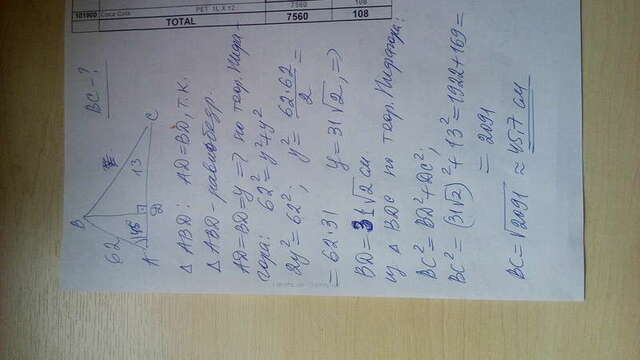 BC - ?
B
62
45
13
A
D
C
△ ABD: AD=BD, т.к.
△ ABD - равнобедр.
AD=BD=y => по теор. Пифа-
гора: 62² = y²+y²
2y² = 62²; y² = 62·62/2 =
= 62·31 y = 31√2, =>
BD = 31√2 см.
из △ BDC по теор. Пифагора:
BC² = BD² + DC²;
BC² = (31√2)² + 13² = 1922+169 =
= 2091
BC = √2091 ≈ 45,7 см
TOTAL
7560
108